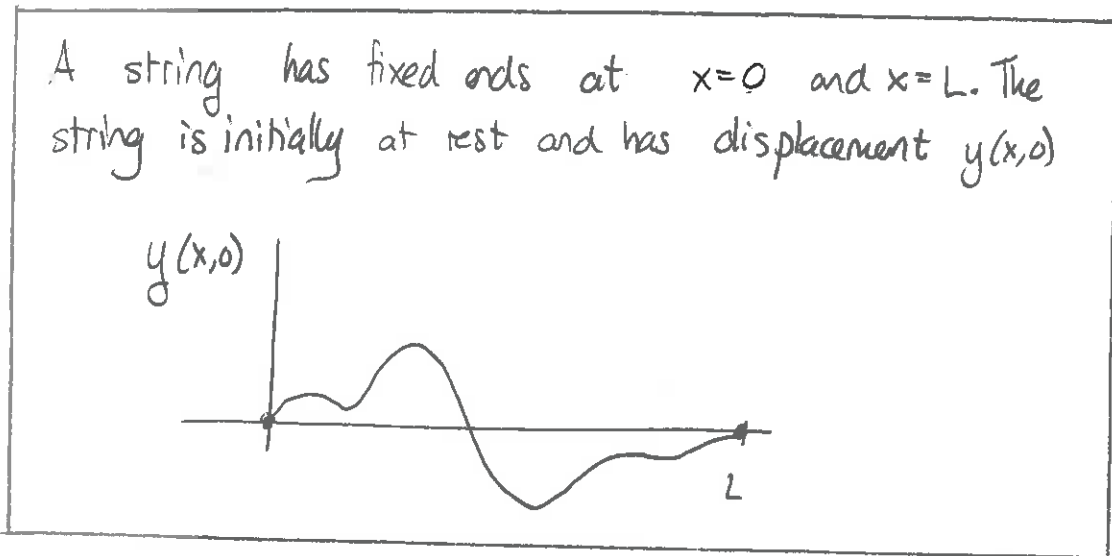 A string has fixed ends at x=0 and x=L. The
string is initially at rest and has displacement y(x,0)
y(x,0)
L